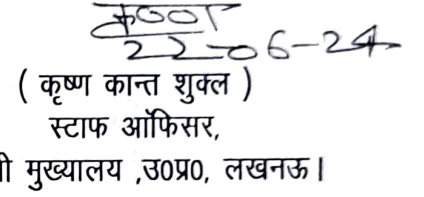 22-06-24
( कृष्ण कान्त शुक्ल )
स्टाफ ऑफिसर,
मुख्यालय ,उ0प्र0, लखनऊ।